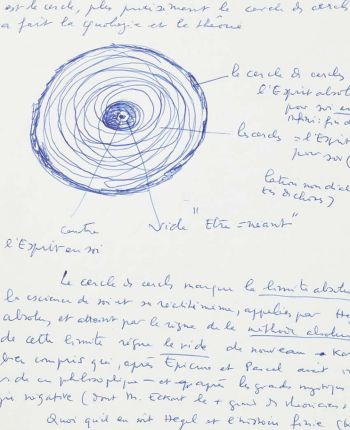 est le cercle, plus précisément le cercle de cercles
a fait la et la théorie
le cercle de cercles
l'Esprit absolu
pour soi en
infini: fin d
les cercles = l'Esprit
pour soi (
lation non dial
des choses)
centre
vide "Etre = néant"
l'Esprit en soi
Le cercle de cercles marque la limite absolue
la science de soi et sa récité même, appelées par He
absolu, et atteint par le règne de la méthode absolue
de cette limite règne le vide de nouveau
bien compris qui, après Epicure et Pascal avait
vide en philosophique – et après les grands mystiques
gie négative (dont M. Eckart le + grand des théoriciens
Quoi qu'il en soit Hegel et l'histoire finie